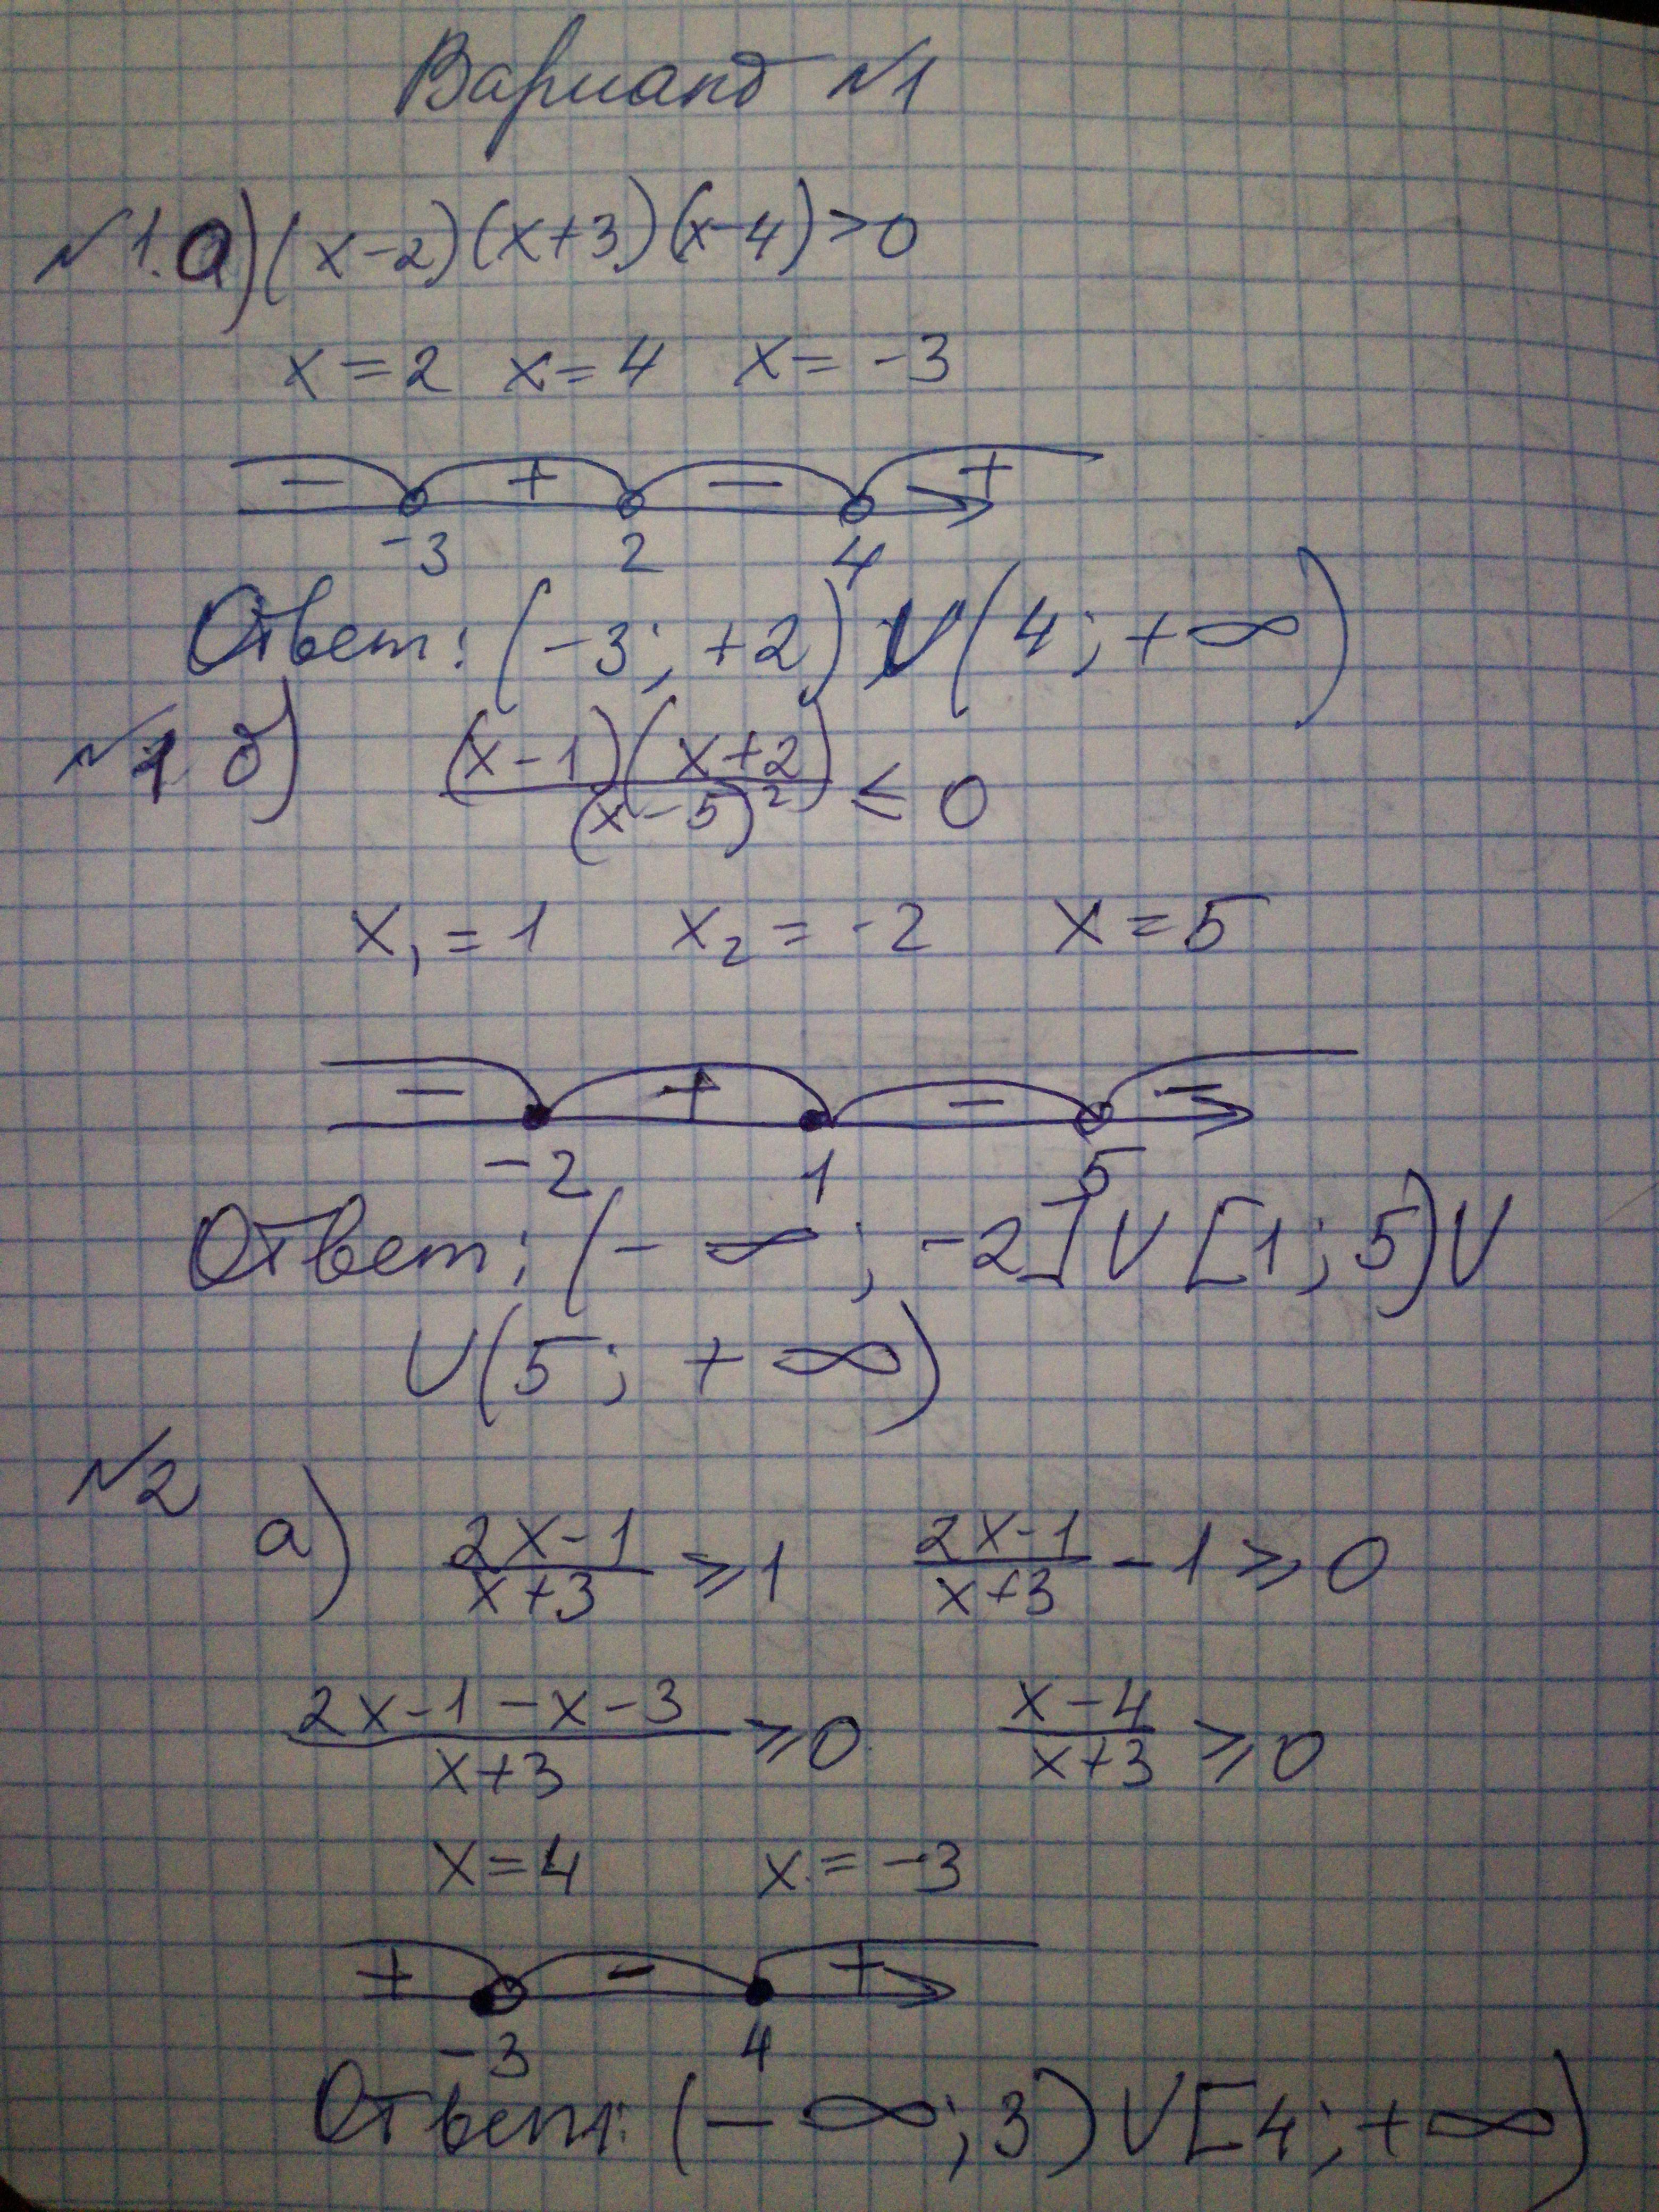 Вариант №1
№1.а) (x-2)(x+3)(x-4)>0
x=2 x=4 x=-3
- + - +
-3 2 4
Ответ: (-3; +2) U (4; +∞)
№1 б) (x-1)(x+2)/(x-5)² ≤ 0
x₁=1 x₂=-2 x=5
- + - -
-2 1 5
Ответ: (-∞; -2] U [1; 5) U
U (5; +∞)
№2
а) (2x-1)/(x+3) ⩾ 1 (2x-1)/(x+3) - 1 ⩾ 0
(2x-1-x-3)/(x+3) ⩾ 0 (x-4)/(x+3) ⩾ 0
x=4 x=-3
+ - +
-3 4
Ответ: (-∞; 3) U [4; +∞)